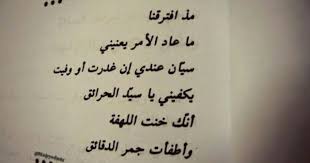 مذ افترقنا
ما عاد الأمر يعنيني
سيّان عندي إن غدرت أو وفيت
يكفيني يا سيّد الحرائق
أنّك خنت اللهفة
وأطفأت جمر الدقائق